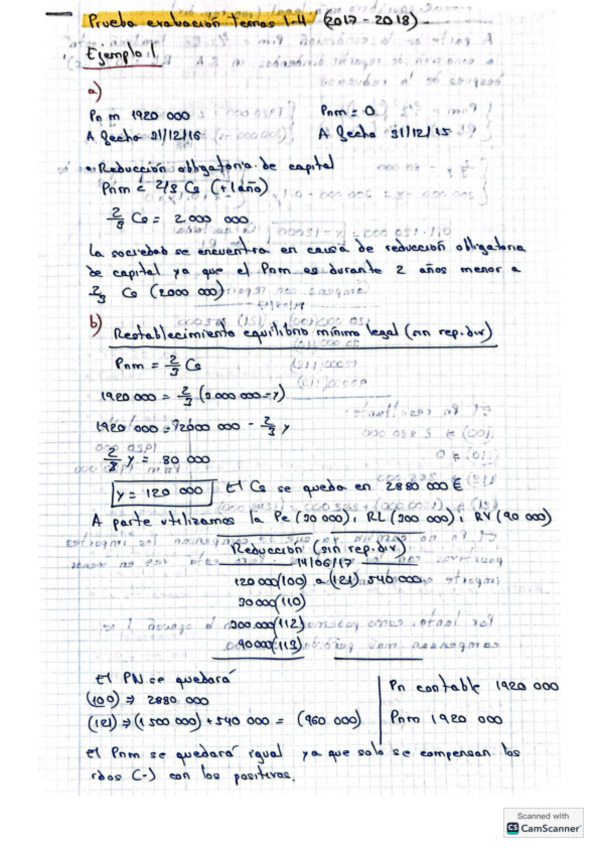 Prueba evaluación temas 1-4 (2017-2018)
Ejemplo 1
a)
Pn m 1920 000 Pnm = 0
A fecha 31/12/16 A fecha 31/12/15
• Reducción obligatoria de capital
Pnm < 2/3 Cs (+1 año)
2/3 Cs = 2 000 000
La sociedad se encuentra en causa de reducción obligatoria
de capital ya que el Pnm es durante 2 años menor a
2/3 Cs (2000 000)
b) Restablecimiento equilibrio mínimo legal (sin rep. div)
Pnm = 2/3 Cs
1920 000 = 2/3 (3.000 000 - y)
1920 000 = 2000 000 - 2/3 y
2/3 y = 80 000
y = 120 000 El Cs se queda en 2880 000 €
A parte utilizamos la Pe (30 000), RL (300 000), RV (90 000)
Reducción (sin rep. div)
14/06/17
120 000 (100) a (121) 540 000
30 000 (110)
300.000 (112)
90 000 (113)
El PN se quedará
(100) ⇒ 2880 000
(121) ⇒ (1 500 000) + 540 000 = (960 000)
Pn contable 1920 000
Pnm 1 920 000
El Pnm se quedará igual ya que solo se compensan los
rdos (-) con los positivos.
Scanned with
CS CamScanner